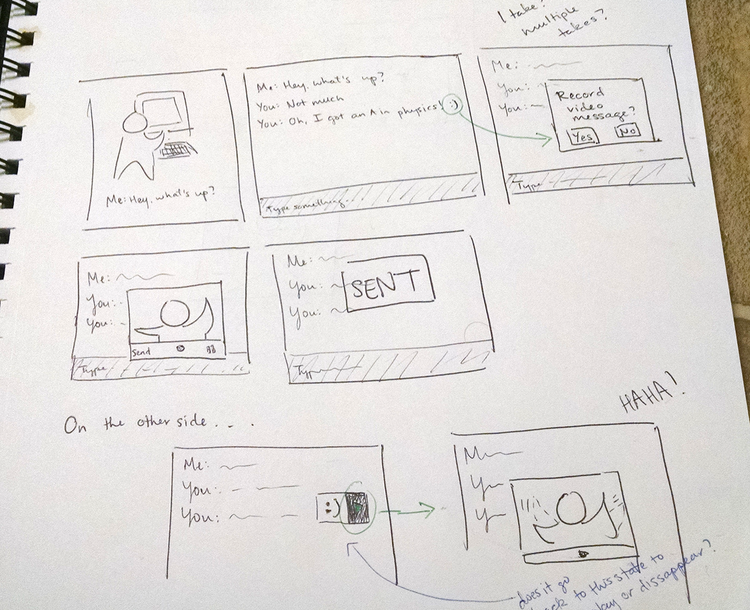 1 take?
multiple
takes?
Me: Hey, what's up?
Me: Hey, what's up?
You: Not much
You: Oh, I got an A in physics! :)
Type something...
Me:
You:
You:
Record
video
message?
Yes No
Type
Me:
You:
You:
Send
Type
Me:
You:
You:
SENT
Type
On the other side....
HAHA!
Me:
You:
You:
M
Y
Y
does it go
to this state to
or dissappear?